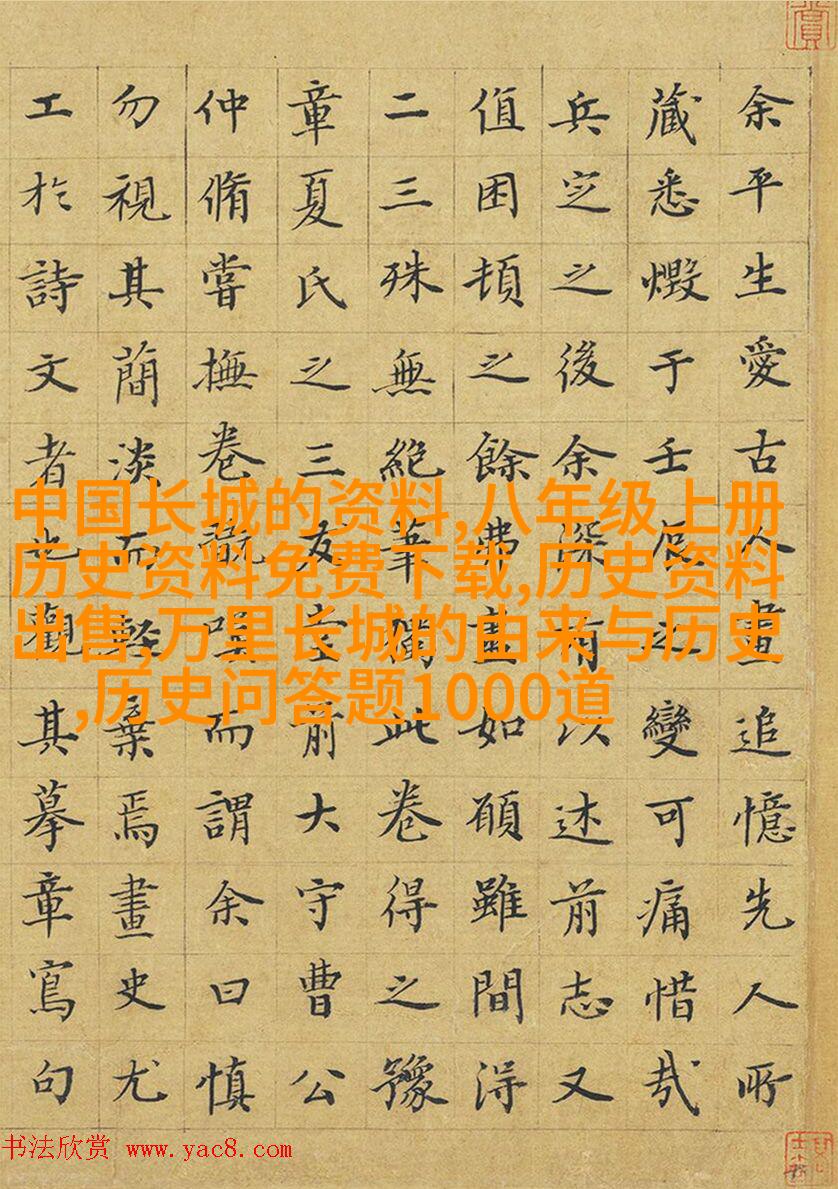 余平生愛古人畫追憶先人所
藏悉燬于壬辰之變可痛惜哉
兵定之後余深有以述前志又
值困頓之餘弗盡如願雖間得
二三殊無絕筆獨此卷得之豫
章夏氏之三友堂前大守曹公
仲脩嘗撫卷翫嘆而謂余曰慎
勿視其蕳淡而輕棄焉畫史尤
工於詩文者也觀其摹章寫句
中国长城的资料,八年级上册
历史资料免费下载,历史资料
出售,万里长城的由来与历史
,历史问答题1000道
书法欣赏 www.yac8.com